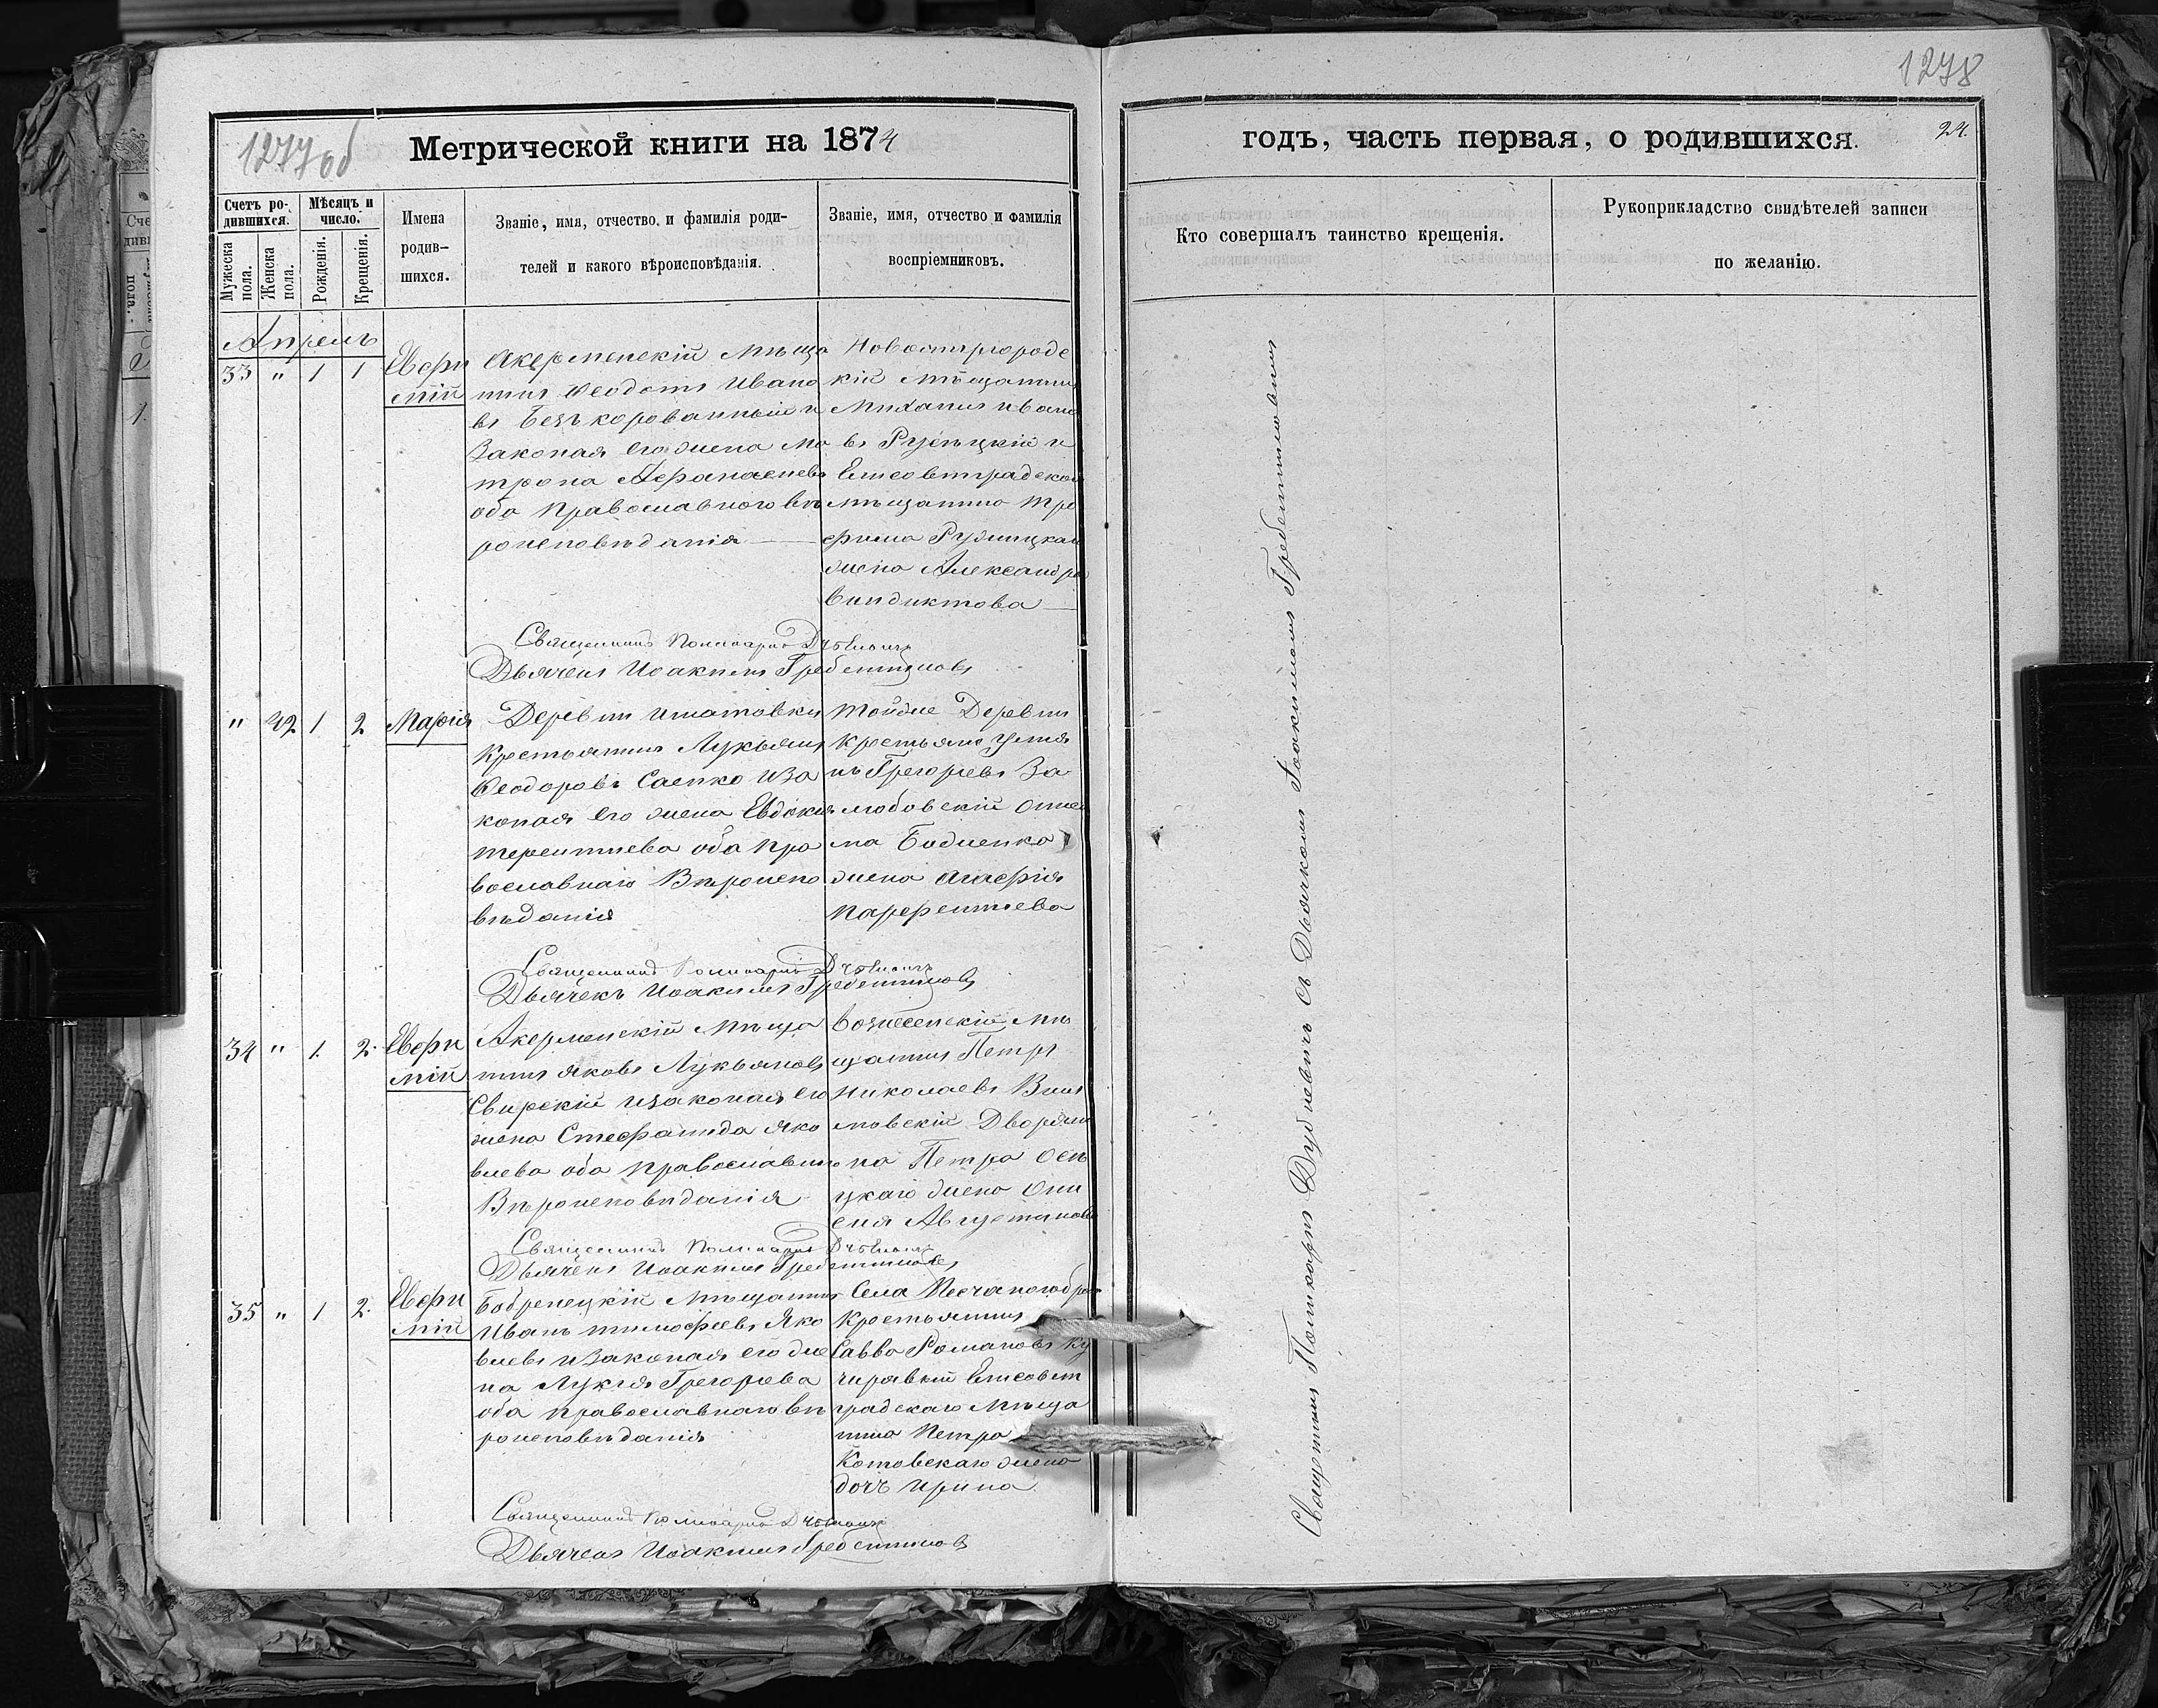 1277об
Метрической книги на 1874
Счетъ ро-
дившихся.
Мѣсяцъ и
число.
Мужеска
пола.
Женска
пола.
Рожденія.
Крещенія.
Имена
родив-
шихся.
Званіе, имя, отчество, и фамилія роди-
телей и какого вѣроисповѣданія.
Званіе, имя, отчество и фамилія
воспріемниковъ.
Апрель
33 " 1 1
Евфи
мій
Акерменскій мѣща
нинъ Феодотъ Ивано
въ Безкорованный и
Законая его жена Ма
трона Афанасиева
оба Православного вѣ
роисповѣданія
Новомиргородс
кій мѣщанинъ
Михаилъ Ивано
въ и
Елисовтградской
мѣщанина Тро
фима
жена Александра
Священникъ Поликарпъ
Дьячекъ Иоакимъ Гребенниковъ
" 42 1 2
Марія
Деревни Игнатовки
Крестьянинъ Лукьянъ
Феодоровъ Саенко иза
коная его жена Евдокия
терентиева оба пра
вославнаго Вѣроиспо
вѣданія
тойже Деревни
Крестьяне
Грегориевъ За
любовскій
ма Бодненко
жена Агафия
парфентиева
Священникъ Поликарпъ
Дьячекъ Иоакимъ Гребенниковъ
34 " 1. 2.
Евфи
мій
Акерменскій мѣща
нинъ Яковъ Лукьяновъ
Свирскій изаконая его
жена Стефанида Яко
влева оба православного
Вѣроисповѣданія
вознесенскій мѣ
щанинъ Петръ
Николаевъ
Дворяни
на Петра
цкаго жена
Августинова
Священникъ Поликарпъ
Дьячекъ Иоакимъ Гребенниковъ
35 " 1 2.
Евфи
мій
Бобренецкій мѣщанинъ
Иванъ тимофеевъ Яко
влевъ изаконая его же
на Лукия Грегорева
оба православнаго вѣ
роисповѣданія
Села Песчаногоброда
Крестьянинъ
Савва Романовъ
Елисовет
градскаго мѣща
нина Петра
Котовскаго
дочь Ирина
Священникъ Поликарпъ
Дьячекъ Иоакимъ Гребенниковъ
1278
годъ, часть первая, о родившихся.
24.
Кто совершалъ таинство крещенія.
Рукоприкладство свидѣтелей записи
по желанію.
Священникъ Поликарпъ Дубневичъ съ Дьячкомъ Іоакимомъ Гребенниковымъ